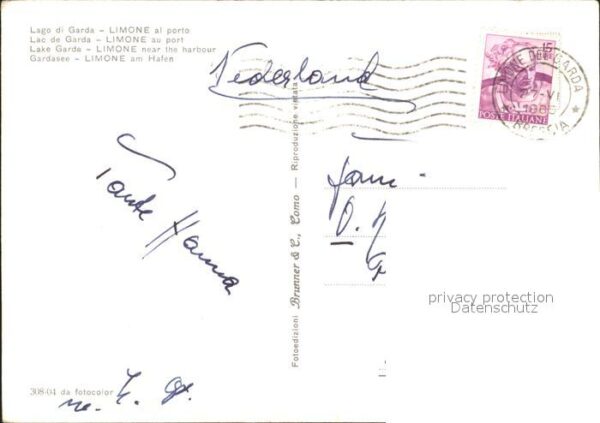 Lago di Garda - LIMONE al porto
Lac de Garda - LIMONE au port
Lake Garda - LIMONE near the harbour
Gardasee - LIMONE am Hafen
Nederland
15
POSTE ITALIANE
LIMONE DEL GARDA
BRESCIA
Tante Hanna
Fotoedizioni Brunner & C., Como — Riproduzione vietata
Fam
O.
privacy protection
Datenschutz
308-04 da fotocolor